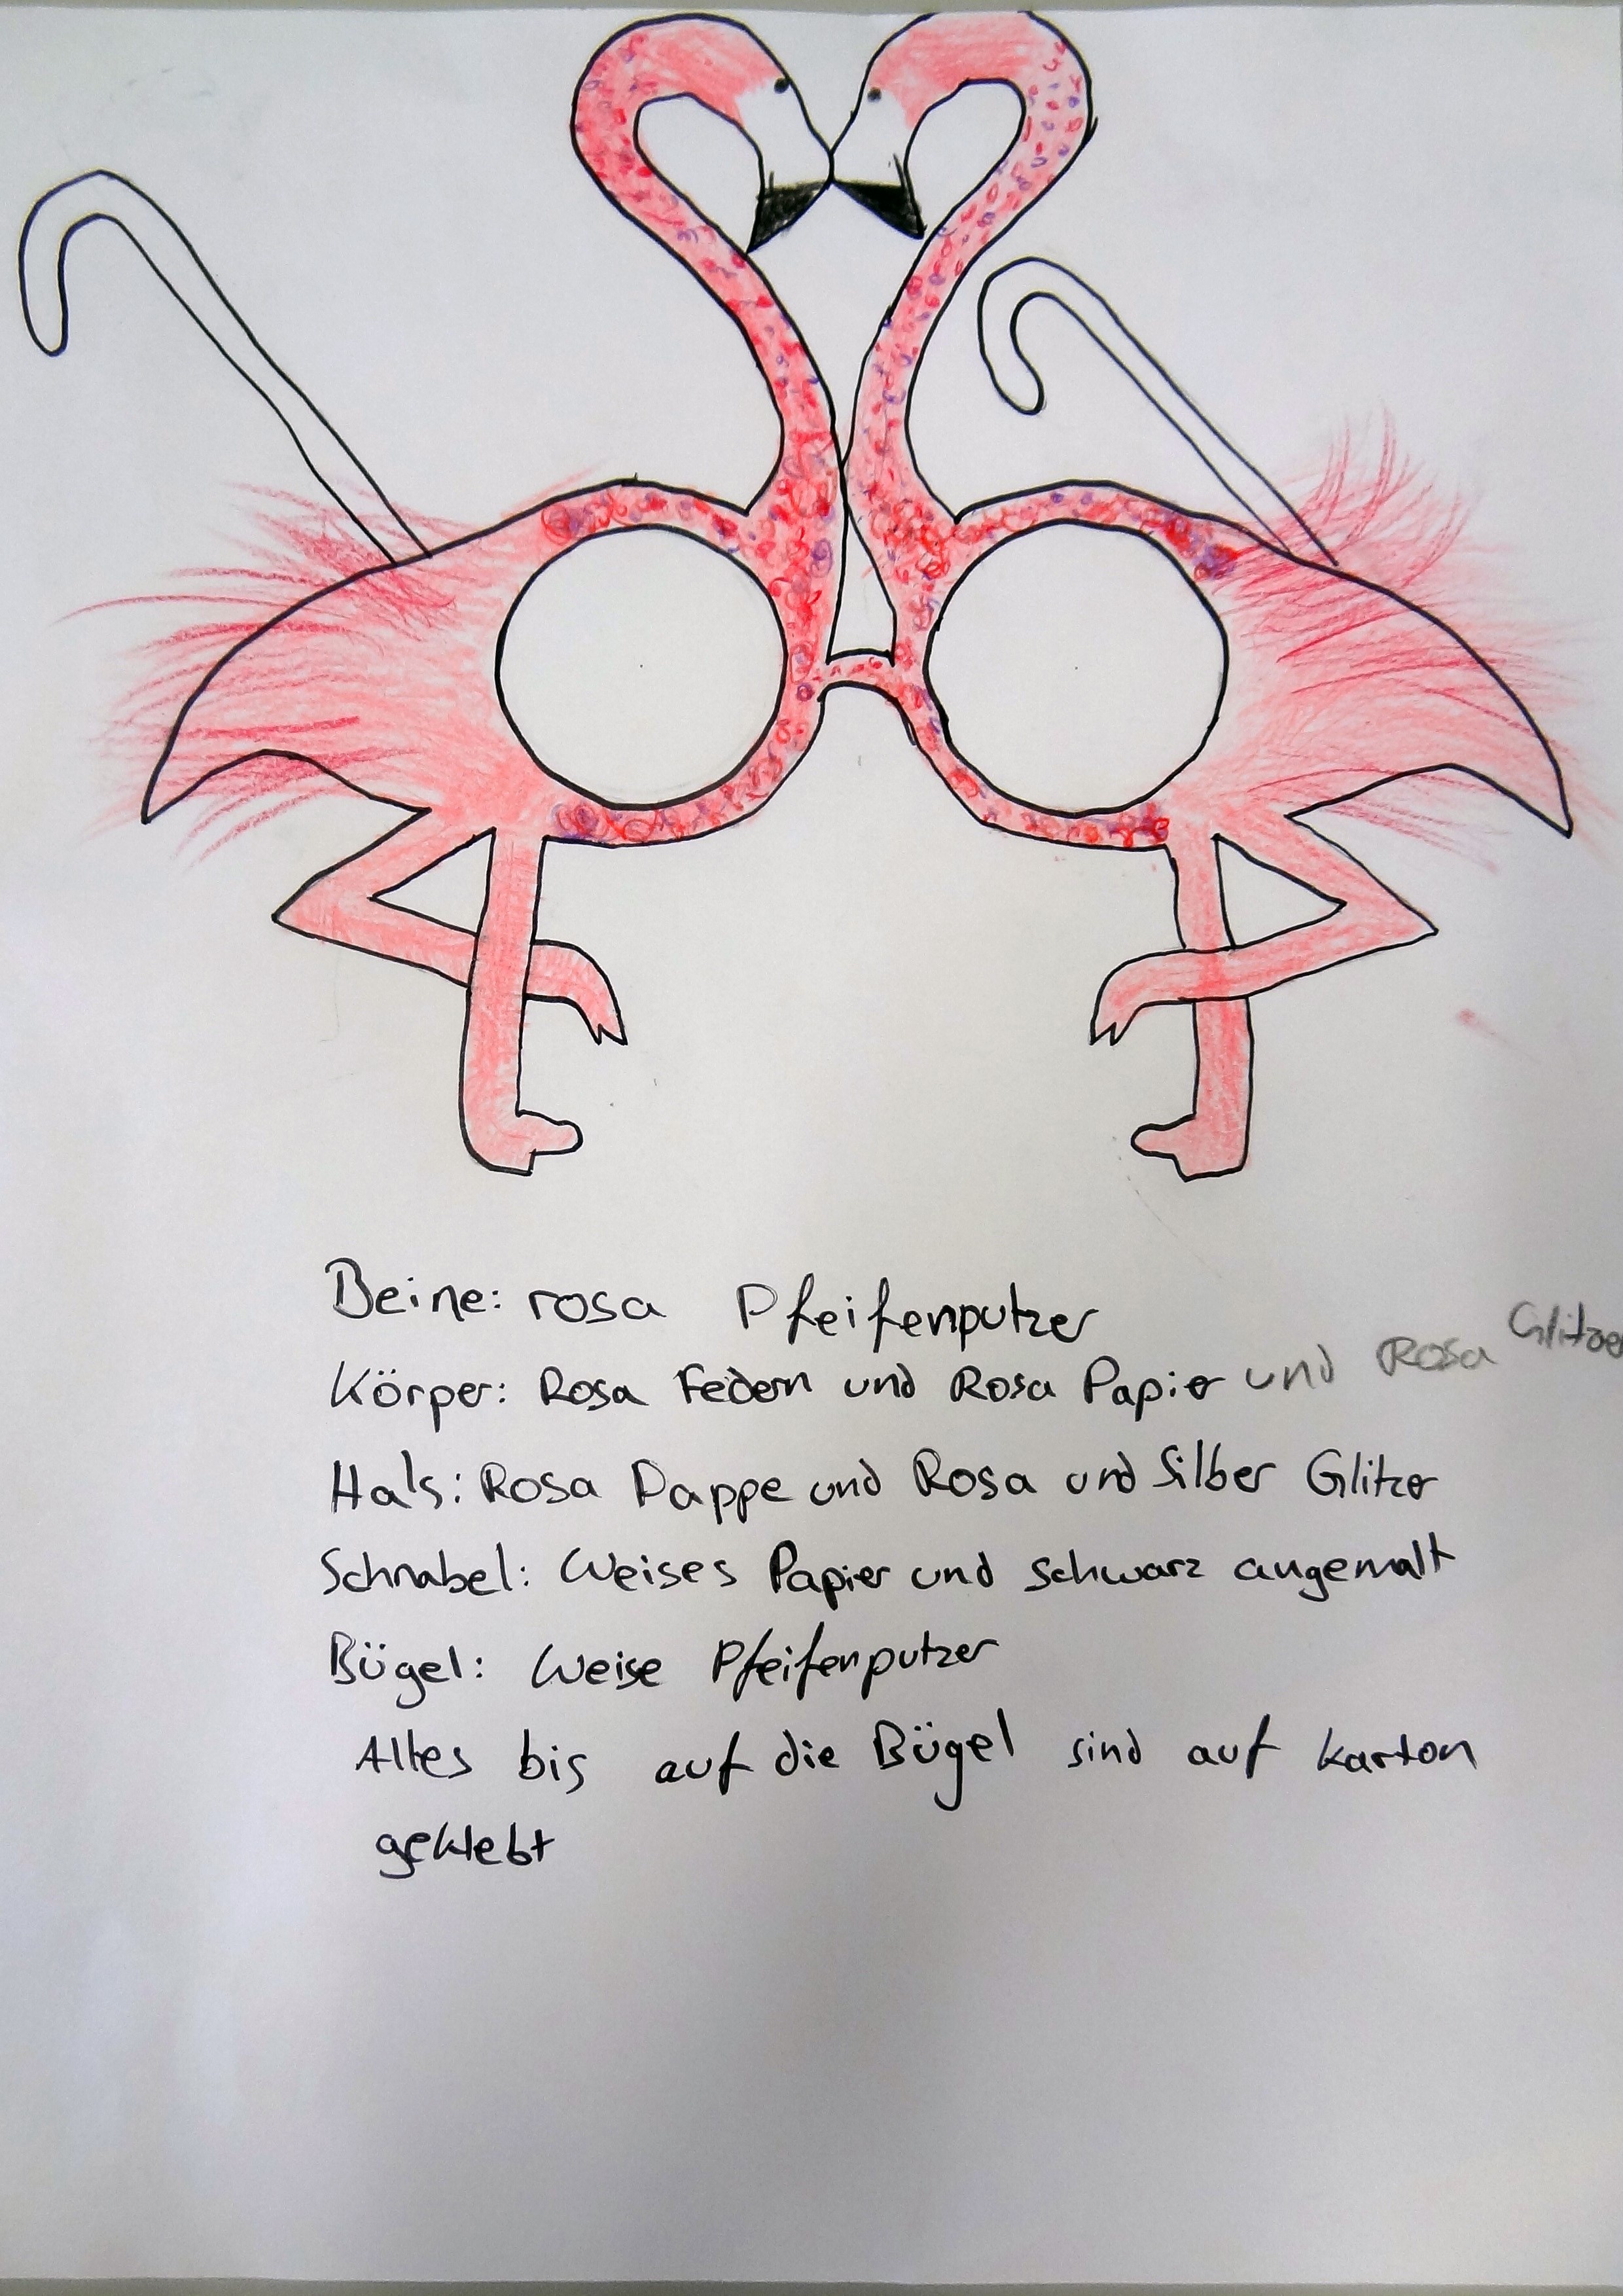 Beine: rosa Pfeifenputzer
Körper: Rosa Federn und Rosa Papier und Rosa Glitzer
Hals: Rosa Pappe und Rosa und Silber Glitzer
Schnabel: Weises Papier und schwarz angemalt
Bügel: Weise Pfeifenputzer
Alles bis auf die Bügel sind auf karton
geklebt